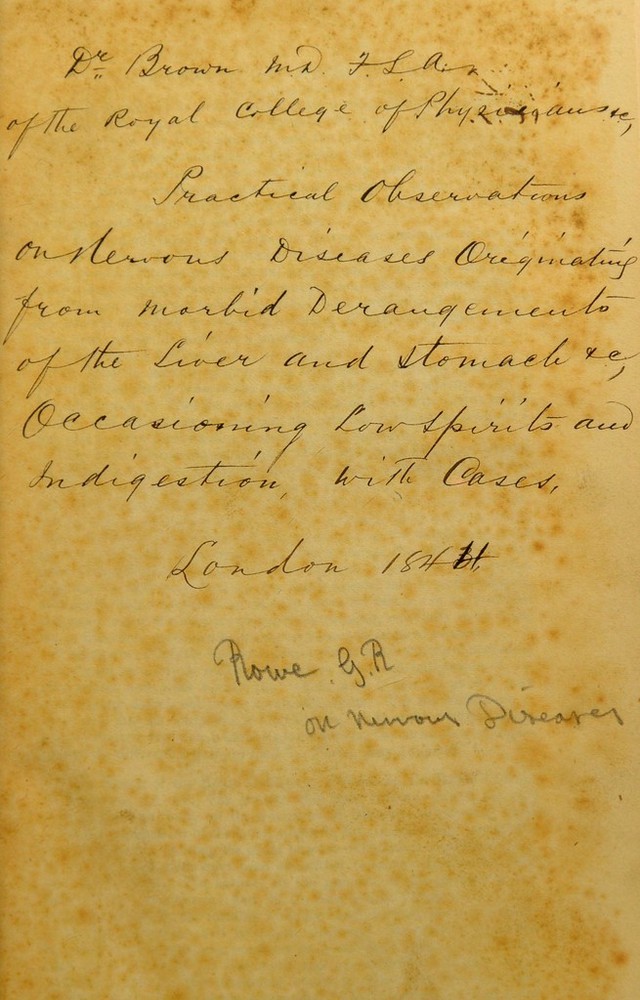 Dr Brown MD. F.S.A.
of the Royal College of Physicians &c,
Practical Observations
on Nervous Diseases Originating
from Morbid Derangements
of the Liver and Stomach &c,
Occasioning Low Spirits and
Indigestion, with Cases,
London 184
Rowe, G. R
on Nervous Diseases